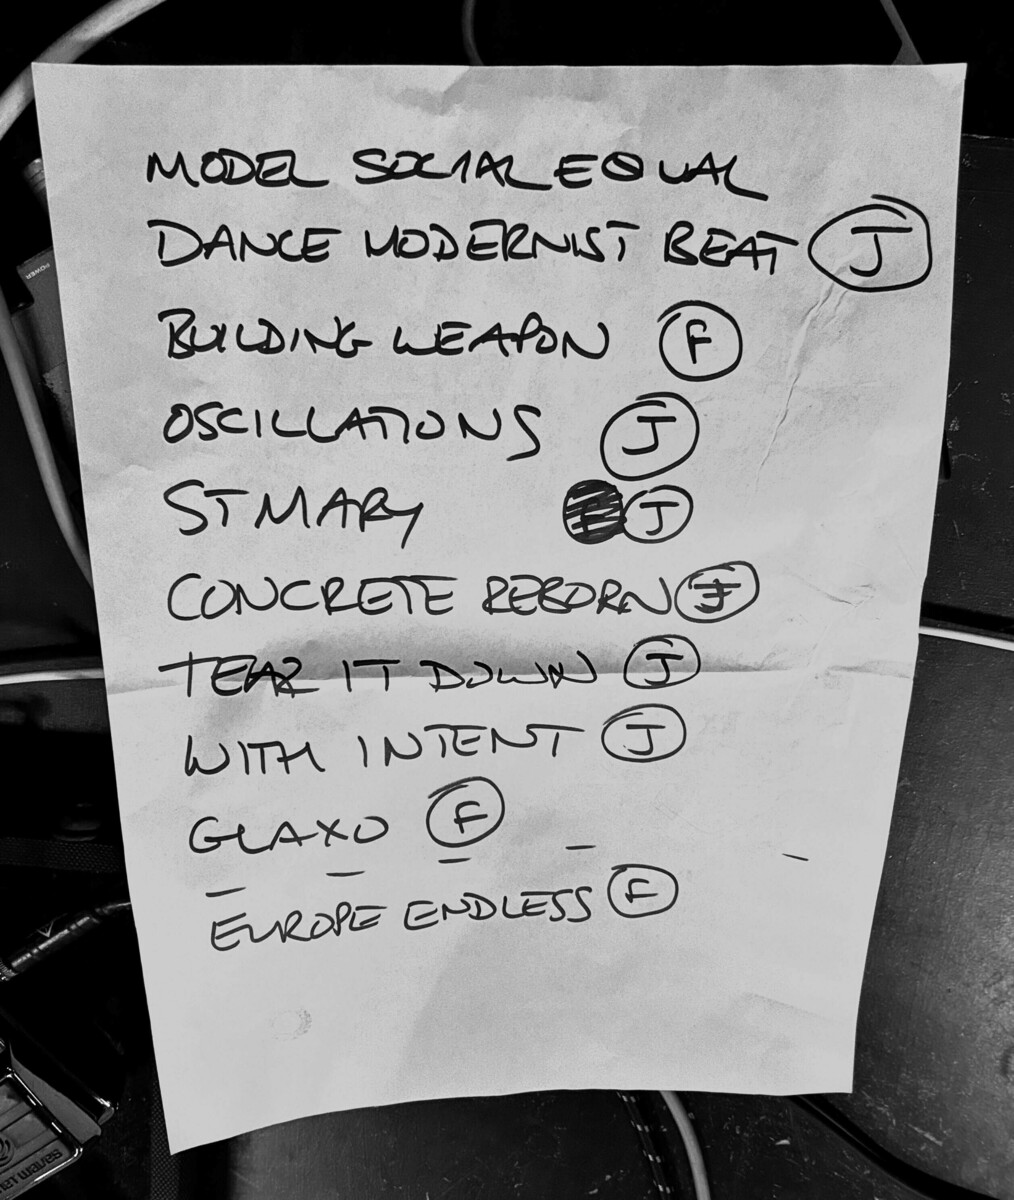 MODEL SOCIAL EQUAL
DANCE MODERNIST BEAT J
BUILDING WEAPON F
OSCILLATIONS J
ST MARY J
CONCRETE REBORN J
TEAR IT DOWN J
WITH INTENT J
GLAXO F
EUROPE ENDLESS F
POWER